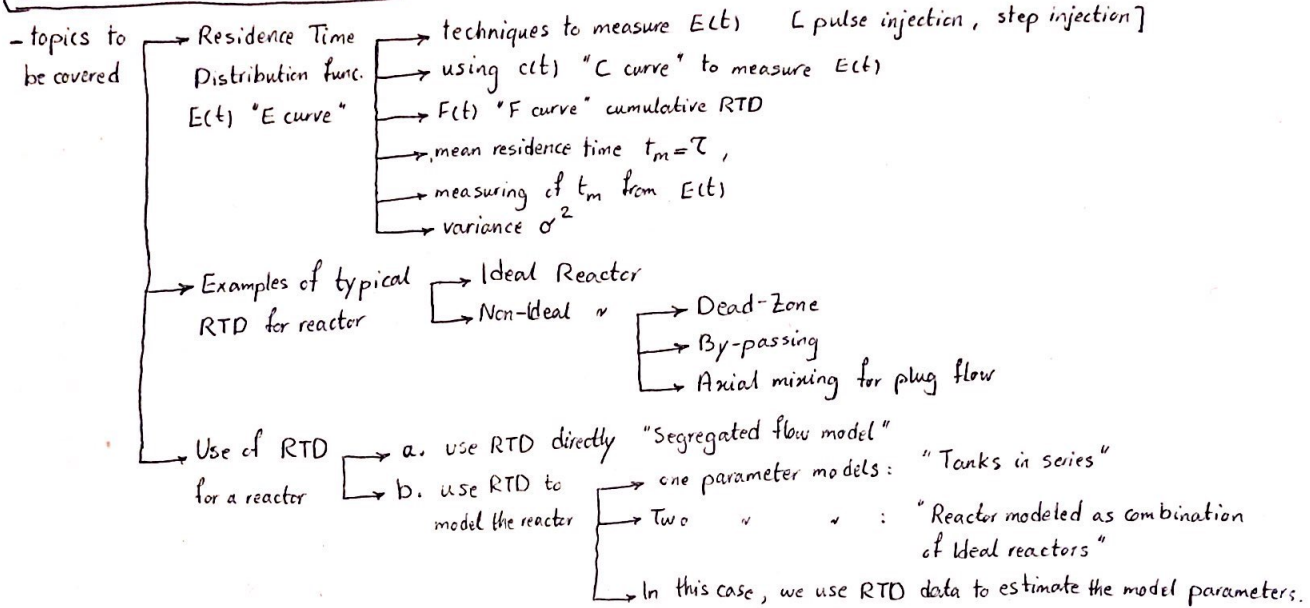 - topics to be covered
Residence Time Distribution func. E(t) "E curve"
techniques to measure E(t) [pulse injection, step injection]
using c(t) "C curve" to measure E(t)
F(t) "F curve" cumulative RTD
mean residence time tₘ = τ,
measuring of tₘ from E(t)
variance σ²
Examples of typical RTD for reactor
Ideal Reactor
Non-Ideal 〃
Dead-Zone
By-passing
Axial mixing for plug flow
Use of RTD for a reactor
a. use RTD directly "Segregated flow model"
b. use RTD to model the reactor
one parameter models: "Tanks in series"
Two 〃 〃 : "Reactor modeled as combination of Ideal reactors"
In this case, we use RTD data to estimate the model parameters.